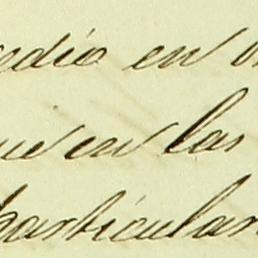 edio en
que en las
particular